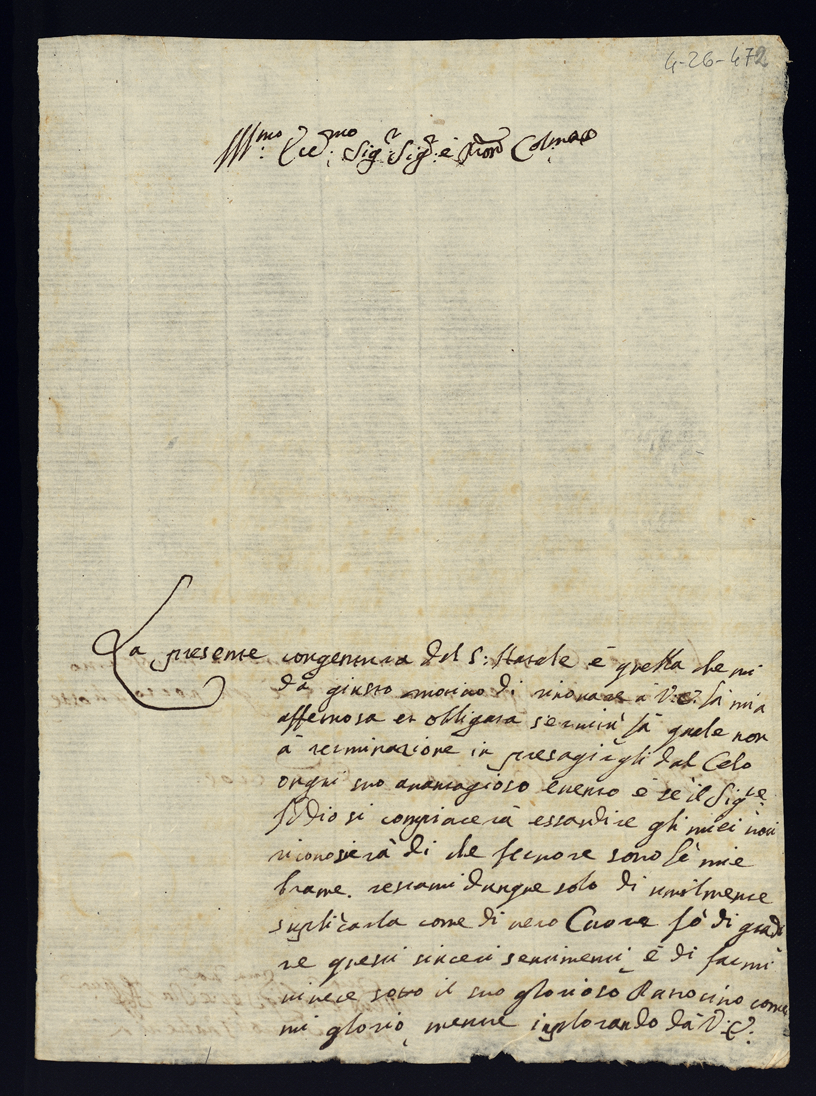 4-26-472
Ill.mo Ecc.mo Sig.r Sig.r e Pron Col:mo
La presente congentura del S: Natale è quella che mi
dà giusto motivo di rinovare à V:E: la mia
affettuosa et obligata servitù la quale non
à terminazione in presagirgli dal Celo
ongni suo avantagioso evento e se il Sig.re
Iddio si compiacerà essaudire gli miei voti
riconosierà di che fervore sono le mie
brame. restami dunque solo di umilmente
suplicarla come di vero Cuore fò di gradi
re questi sinceri sentimenti e di farmi
vivere soto il suo glorioso Patrocino come
mi glorio, mentre inplorando dà V:E: